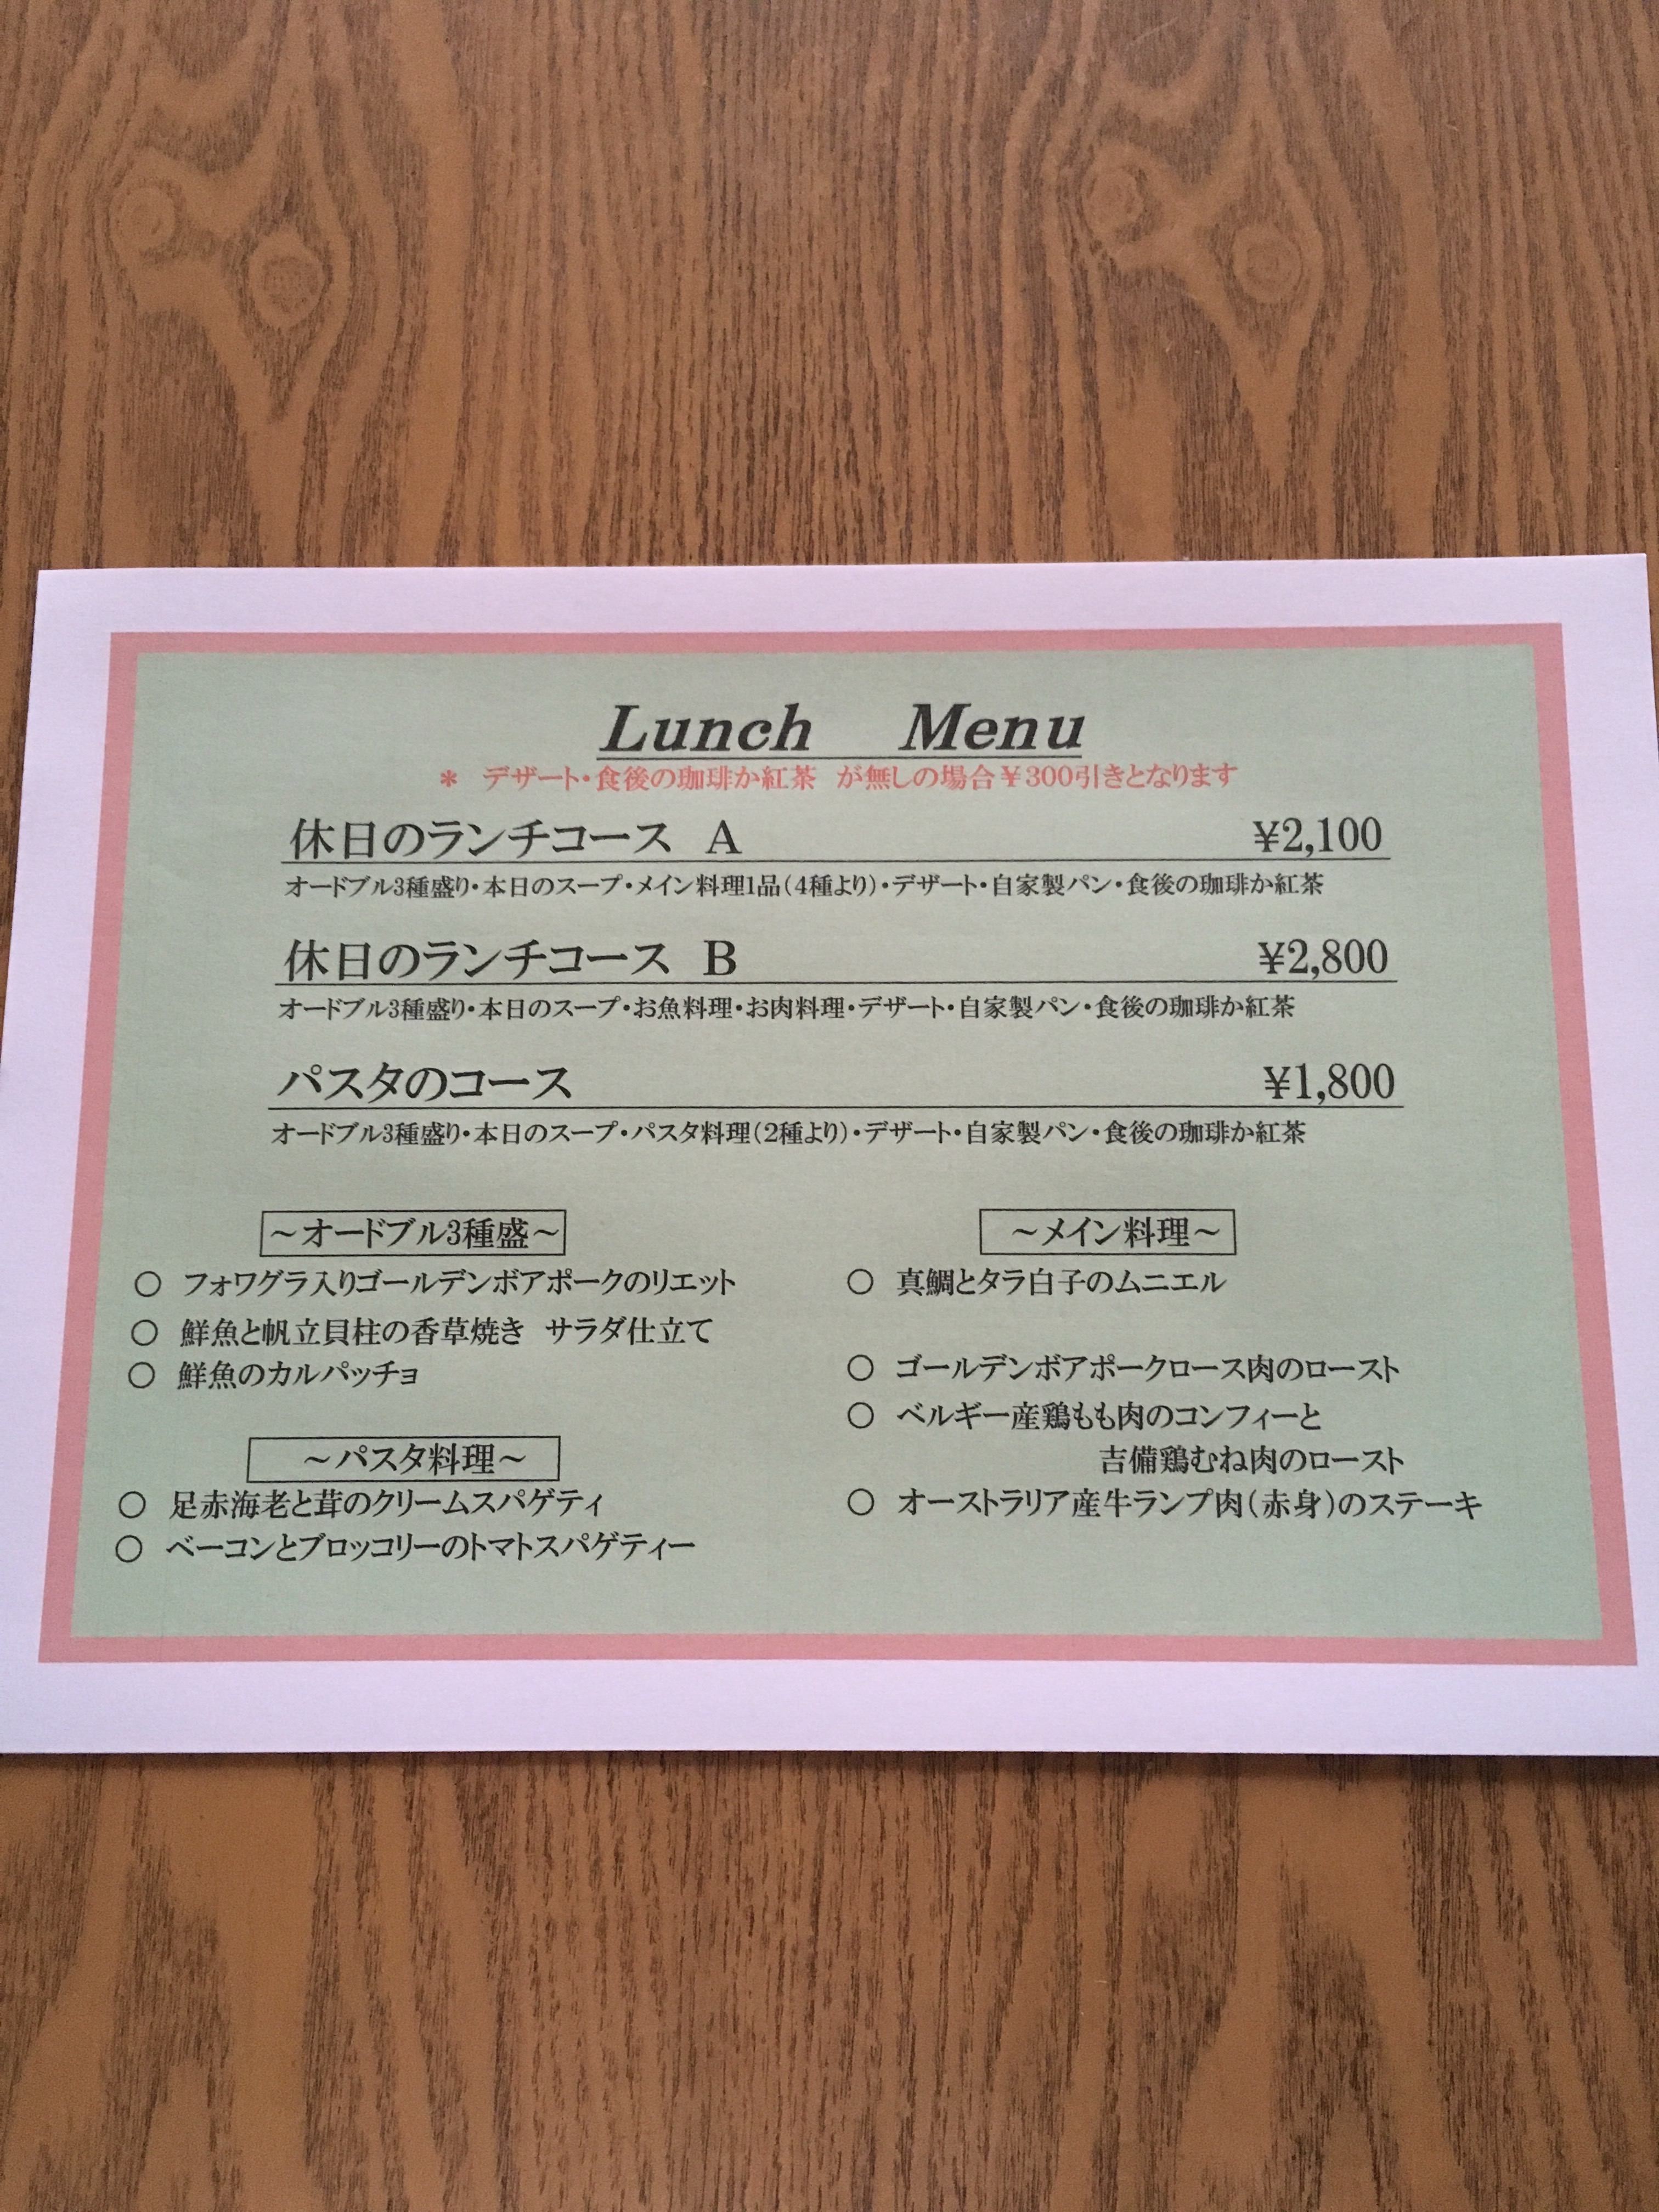 Lunch Menu
＊ デザート・食後の珈琲か紅茶 が無しの場合￥300引きとなります
休日のランチコース A ￥2,100
オードブル3種盛り・本日のスープ・メイン料理1品（4種より）・デザート・自家製パン・食後の珈琲か紅茶
休日のランチコース B ￥2,800
オードブル3種盛り・本日のスープ・お魚料理・お肉料理・デザート・自家製パン・食後の珈琲か紅茶
パスタのコース ￥1,800
オードブル3種盛り・本日のスープ・パスタ料理（2種より）・デザート・自家製パン・食後の珈琲か紅茶
～オードブル3種盛～
○ フォワグラ入りゴールデンボアポークのリエット
○ 鮮魚と帆立貝柱の香草焼き サラダ仕立て
○ 鮮魚のカルパッチョ
～パスタ料理～
○ 足赤海老と茸のクリームスパゲティ
○ ベーコンとブロッコリーのトマトスパゲティー
～メイン料理～
○ 真鯛とタラ白子のムニエル
○ ゴールデンボアポークロース肉のロースト
○ ベルギー産鶏もも肉のコンフィーと
吉備鶏むね肉のロースト
○ オーストラリア産牛ランプ肉（赤身）のステーキ